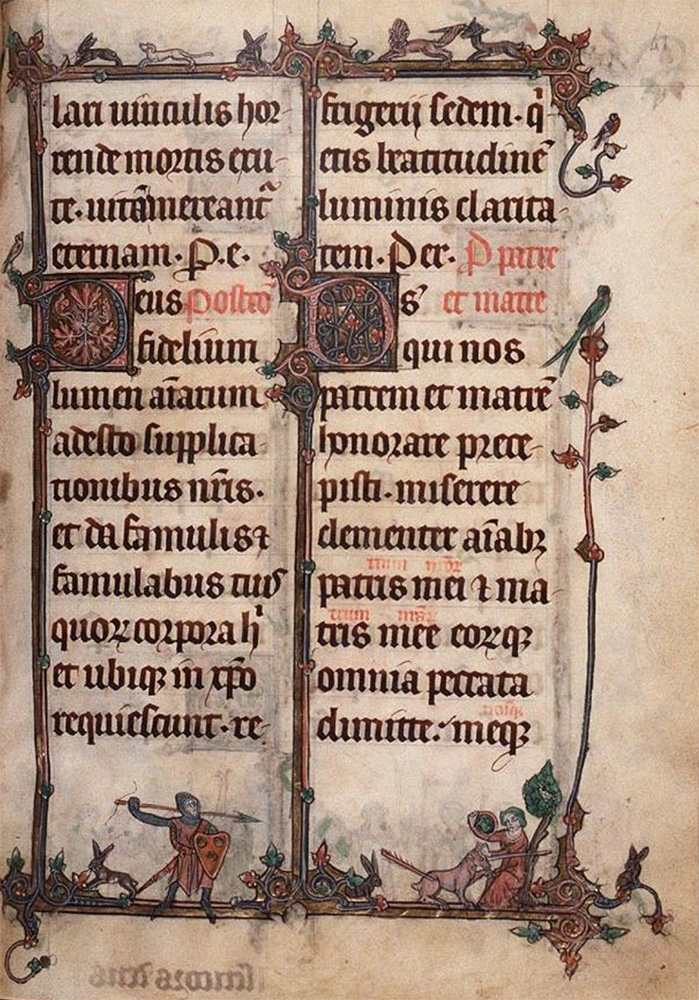 lari uinculis hor-
rende mortis exu-
te. uitā mereant᷑
eternam. P. e.
Deus Post cō
fidelium
lumen aīarum
adesto supplica-
tionibus nr̄is.
et da famulis ⁊
famulabus tuis
quoꝝ corpora hͥ
et ubiqꝫ in xp̄o
requiescunt. re-
frigerij sedem. qͥ
etis beatitudinē
luminis clarita-
tem. Per. P patre
Ds᷒ et matre
qui nos
patrem et matrē
honorare prece-
pisti. miserere
clementer aīabꝫ
trum nr̄oꝝ
patris mei ⁊ ma-
trum nr̄aꝝ
tris mee eoꝝqꝫ
omnia peccata
nosqꝫ
dimitte: meqꝫ